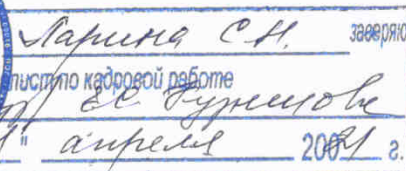 Ларина С.Н. заверяю
лист по кадровой работе
Е.С.
" апреля 200 г.